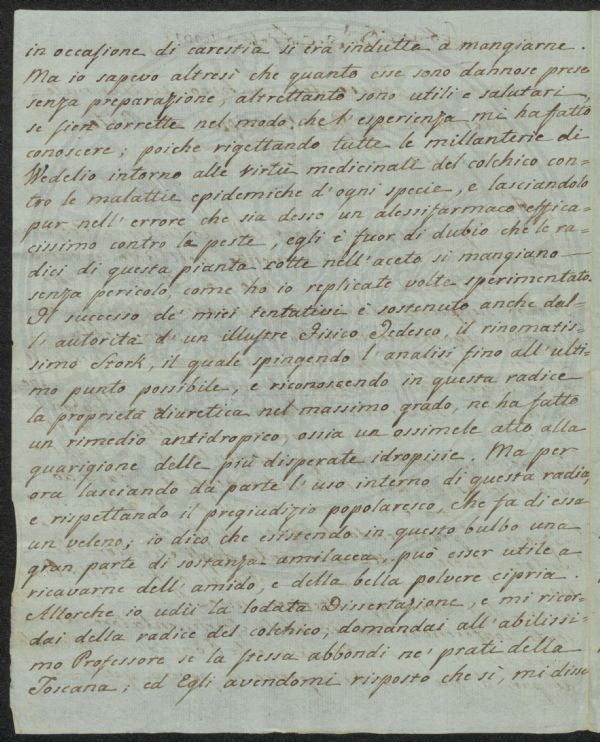 in occasione di carestia si era indutta a mangiarne.
Ma io sapevo altresi che quanto esse sono dannose prese
senza preparazione, altrettanto sono utili e salutari,
se sien corrette nel modo che l'esperienza mi ha fatto
conoscere; poiche rigettando tutte le millanterie di
Wedelio intorno alle virtù medicinali del colchico con=
tro le malattie epidemiche d'ogni specie, e lasciandolo
pur nell'errore che sia desso un alessifarmaco effica=
cissimo contro la peste, egli è fuor di dubio che le ra=
dici di questa pianta cotte nell'aceto si mangiano
senza pericolo, come ho io replicate volte sperimentato.
Il successo de' miei tentativi è sostenuto anche dal=
l'autorità d'un illustre Fisico Tedesco, il rinomatis=
simo Stork, il quale spingendo l'analisi fino all'ulti=
mo punto possibile, e riconoscendo in questa radice
la proprietà diuretica nel massimo grado, ne ha fatto
un rimedio antidropico, ossia un ossimele atto alla
guarigione delle più disperate idropisie. Ma per
ora lasciando da parte l'uso interno di questa radice,
e rispettando il pregiudizio popolaresco, che fa di essa
un veleno; io dico che esistendo in questo bulbo una
gran parte di sostanza amilacea, può esser utile a
ricavarne dell'amido, e della bella polvere cipria.
Allorche io udii la lodata Dissertazione, e mi ricor=
dai della radice del colchico, domandai all'abilissi=
mo Professore se la stessa abbondi ne' prati della
Toscana; ed Egli avendomi risposto che sì, mi disse